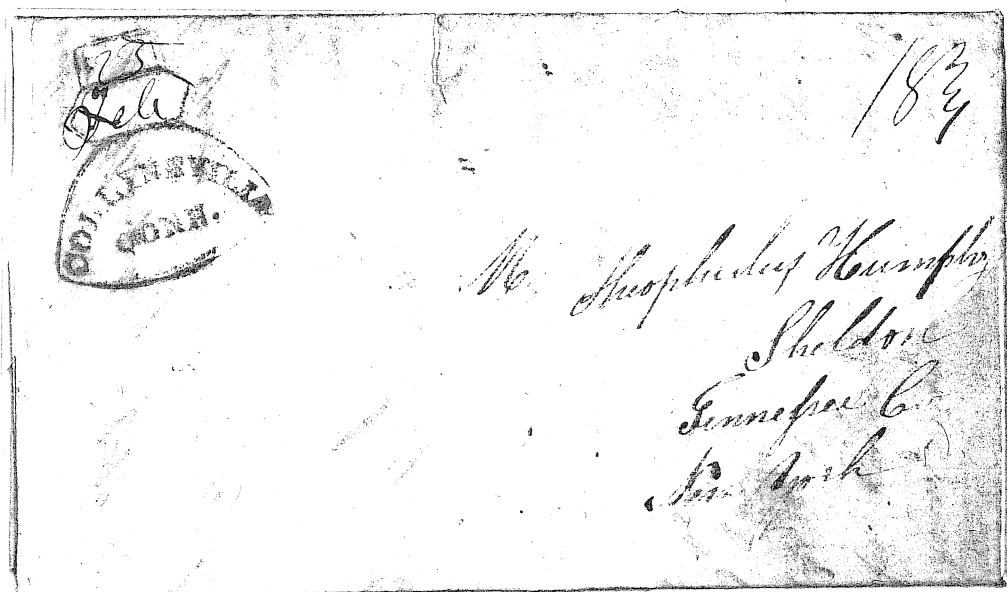 Feb
COLLINSVILLE
CONN.
18¾
M Theophilus Humphry
Sheldon
Gennesee Co
New York